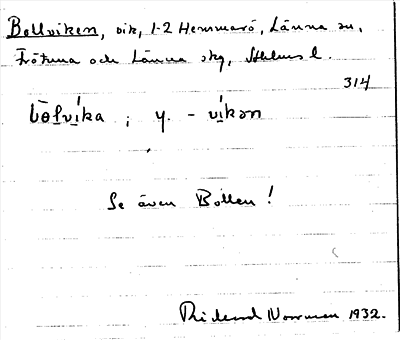 Bollviken, vik, 1-2 Hemmarö, Länna sn,
Frötuna och Länna skg, Sthlms l.
314
bɵlvika ; y. - vikən
Se även Bollen!
Rickard Norrman 1932.